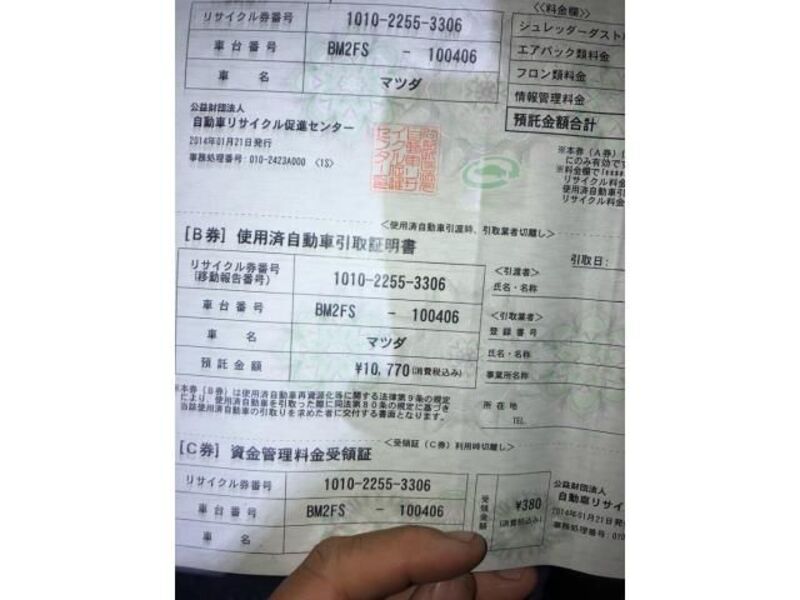 リサイクル券番号 1010-2255-3306
車台番号 BM2FS - 100406
車名 マツダ
≪料金欄≫
シュレッダーダスト
エアバッグ類料金
フロン類料金
情報管理料金
預託金額合計
公益財団法人
自動車リサイクル促進センター
2014年01月21日発行
事務処理番号:010-2423A000 <1S>
※本券(A券)
にのみ有効です
※料金欄で
リサイクル料金
使用済自動車引
リサイクル料金
<使用済自動車引渡時、引取業者切離し>
[B券] 使用済自動車引取証明書
引取日:
リサイクル券番号
(移動報告番号) 1010-2255-3306
車台番号 BM2FS - 100406
車名 マツダ
預託金額 ¥10,770(消費税込み)
<引渡者>
氏名・名称
<引取業者>
登録番号
氏名・名称
事業所名称
所在地
TEL.
※本券(B券)は使用済自動車再資源化等に関する法律第9条の規定
により、使用済自動車を引取った際に同法第80条の規定に基づき
当該使用済自動車の引取りを求めた者に交付する書面となります。
<受領証(C券)利用時切離し>
[C券] 資金管理料金受領証
リサイクル券番号 1010-2255-3306
車台番号 BM2FS - 100406
車名
受領金額 ¥380
(消費税込み)
公益財団法人
自動車リサイ
2014年01月21日発
事務処理番号:010